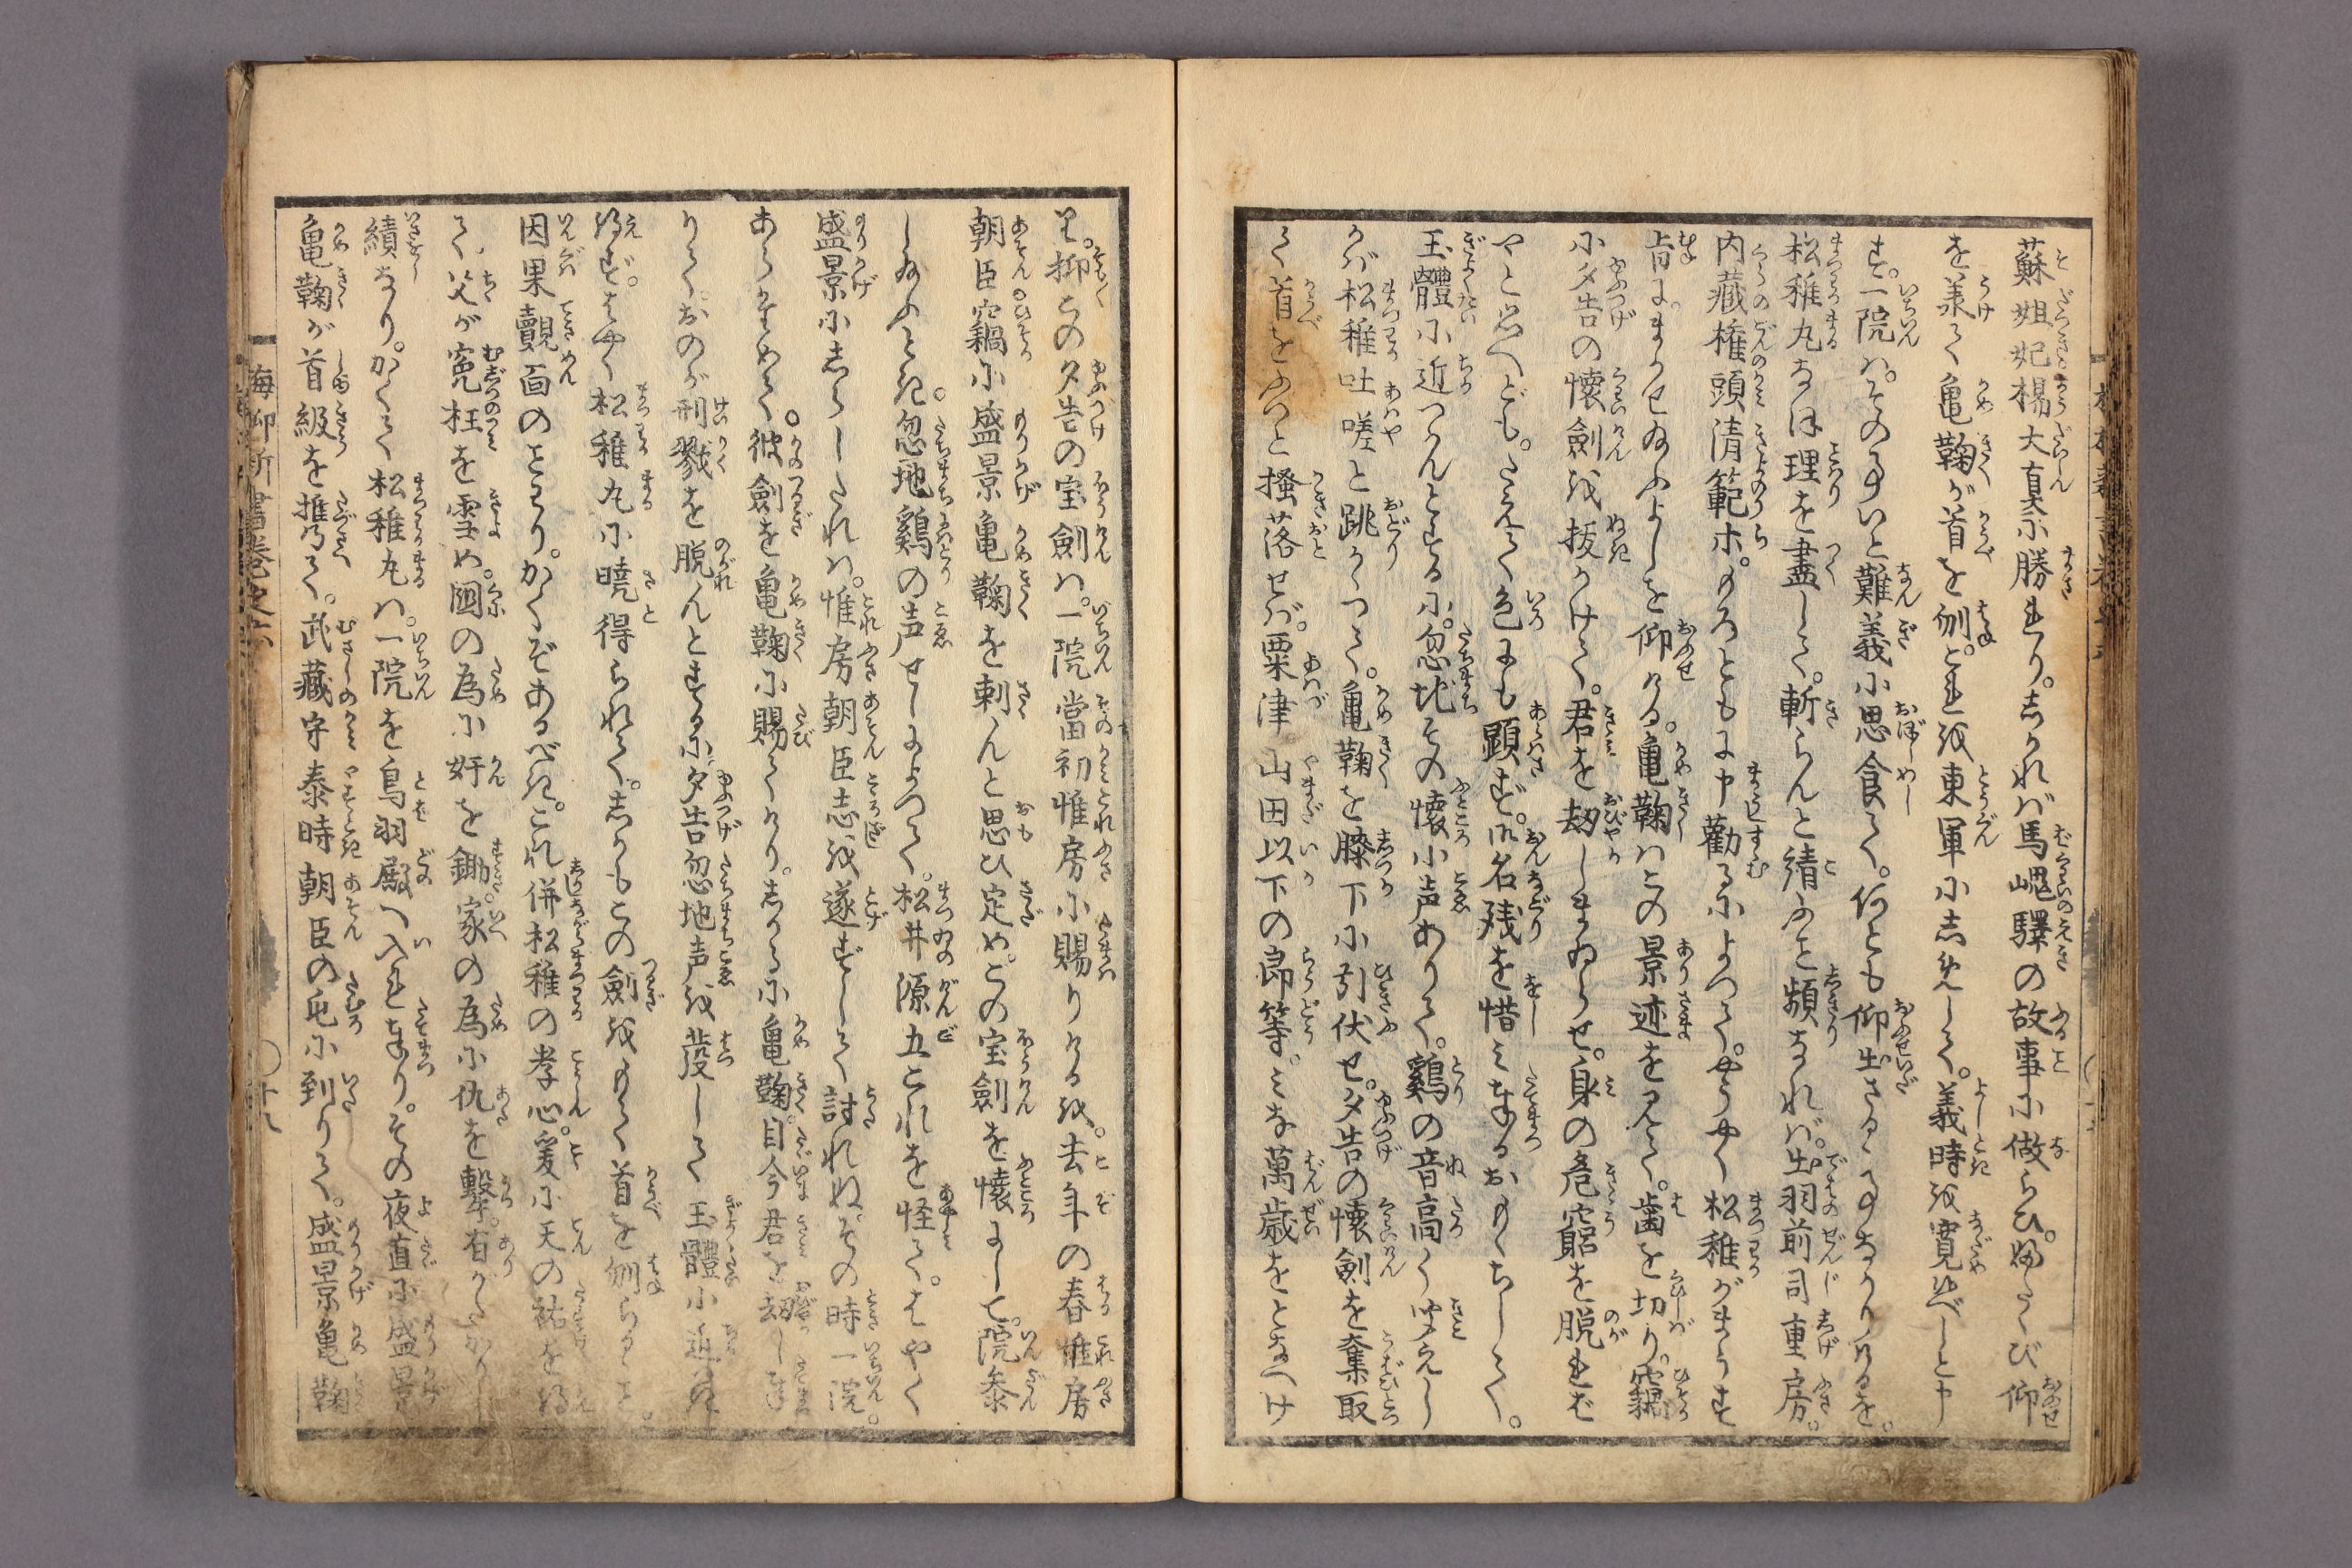 蘇妲妃楊大真に勝れり。しかれば馬嵬驛の故事に做らひ。ふたゝび仰
を兼て亀鞠が首を刎。これを東軍にしめして。義時を寛めべしと申
す。一院は。その事いと難義に思食て。何とも仰出さるゝ事なかりけるを。
松稚丸なほ理を盡して。斬らんと請ふこと頻なれば。出羽前司重房。
内藏権頭清範ホ。もろともに申勸るによつて。やうやく松稚がまうす
旨にまかせ給ふよしを仰ける。亀鞠はこの景迹を見て。歯を切り。竊
に夕告の懷劍を抜かけて。君を劫しまゐらせ。身の危窮を脱ればや
やと思へども。たえて色にも顕さず。御名残を惜み奉るおもゝちして。
玉體に近つかんとするに。忽地その懷に声ありて。鷄の音高く聞えし
かば松稚吐嗟と跳かゝつて。亀鞠を膝下に引伏せ。夕告の懷劍を奪取
て首をふつと掻落せば。粟津山田以下の郎等。みな萬歳をとなへけ
り。抑この夕告の宝劍は。一院當初惟房に賜りけるを。去年の春惟房
朝臣竊に盛景亀鞠を刺んと思ひ定め。この宝劍を懷にして。院参
し給ふとき。忽地鷄の声せしによつて。松井源五これを怪て。はやく
盛景にしらしたれは。惟房朝臣志を遂ずして討れぬ。その時一院。
あらためて。彼劍を亀鞠に賜てけり。しかるに亀鞠。目今君を劫し奉
りて。おのが刑戮を脱んとするに。夕告忽地声を發して玉體に近
得ず。はやく松稚丸に曉得られて。しかもこの劍をもて首を刎らるゝこと。
因果覿面のことわり。かくぞあるべき。これ併松稚の孝心。爰に天の祐を得
て。父が寃枉を雪め。國の為に奸を鋤。家の為に仇を撃。有がたかりし
績なり。かくて松稚丸は。一院を鳥羽殿へ入れ奉り。その夜直に盛景
亀鞠が首級を携て。武藏守泰時朝臣の屯に到りて。盛景亀鞠